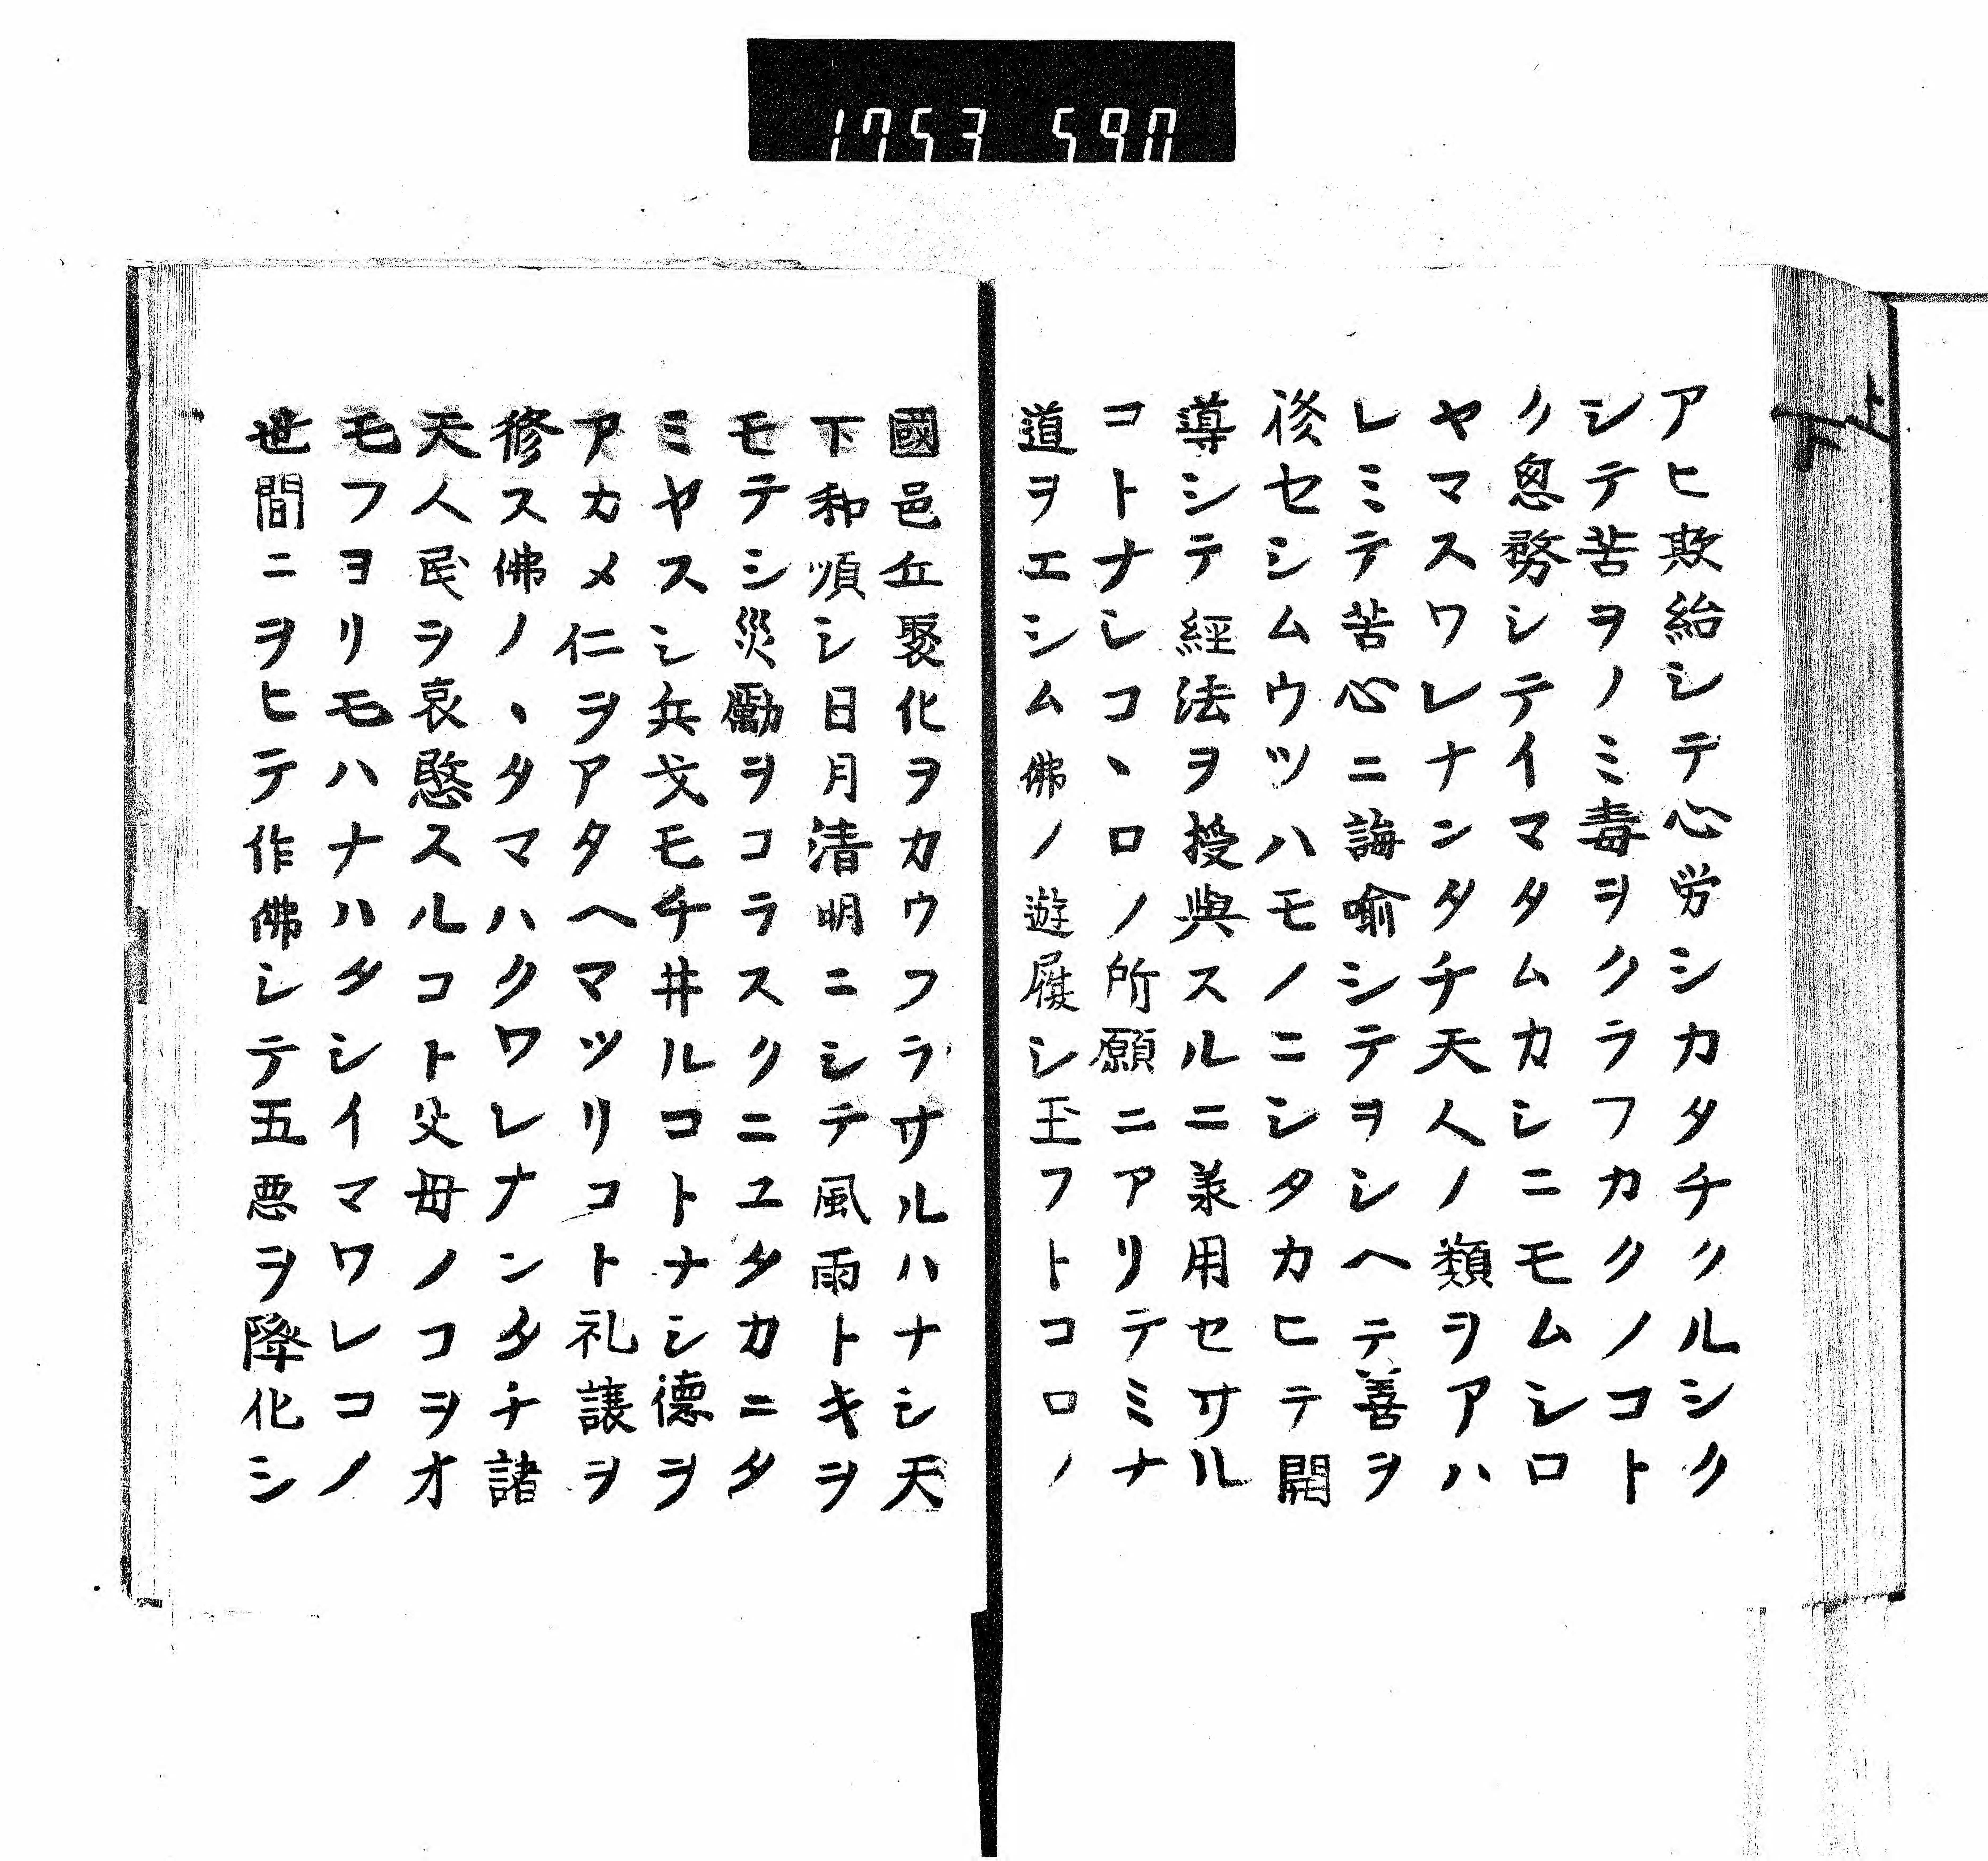 1753 590
上
下
アヒ欺紿シテ心労シカタチクルシク
シテ苦ヲノミ毒ヲクラフカクノコト
ク怱務シテイマタムカシニモムシロ
ヤマスワレナンタチ天人ノ類ヲアハ
レミテ苦心ニ誨喩シテヲシヘテ善ヲ
後セシムウツハモノニシタカヒテ開
導シテ經法ヲ授與スルニ羕用セサル
コトナシコヽロノ所願ニアリテミナ
道ヲエシム佛ノ遊履シ玉フトコロノ
國邑丘聚化ヲカウフラサルハナシ天
下和順シ日月清明ニシテ風雨トキヲ
モテシ災勵ヲコラスクニユタカニタ
ミヤスシ兵戈モチ井ルコトナシ德ヲ
アカメ仁ヲアタヘマツリコト礼讓ヲ
修ス佛ノヽタマハクワレナンタチ諸
天人民ヲ哀愍スルコト父母ノコヲオ
モフヨリモハナハタシイマワレコノ
世間ニヲヒテ作佛シテ五悪ヲ降化シ